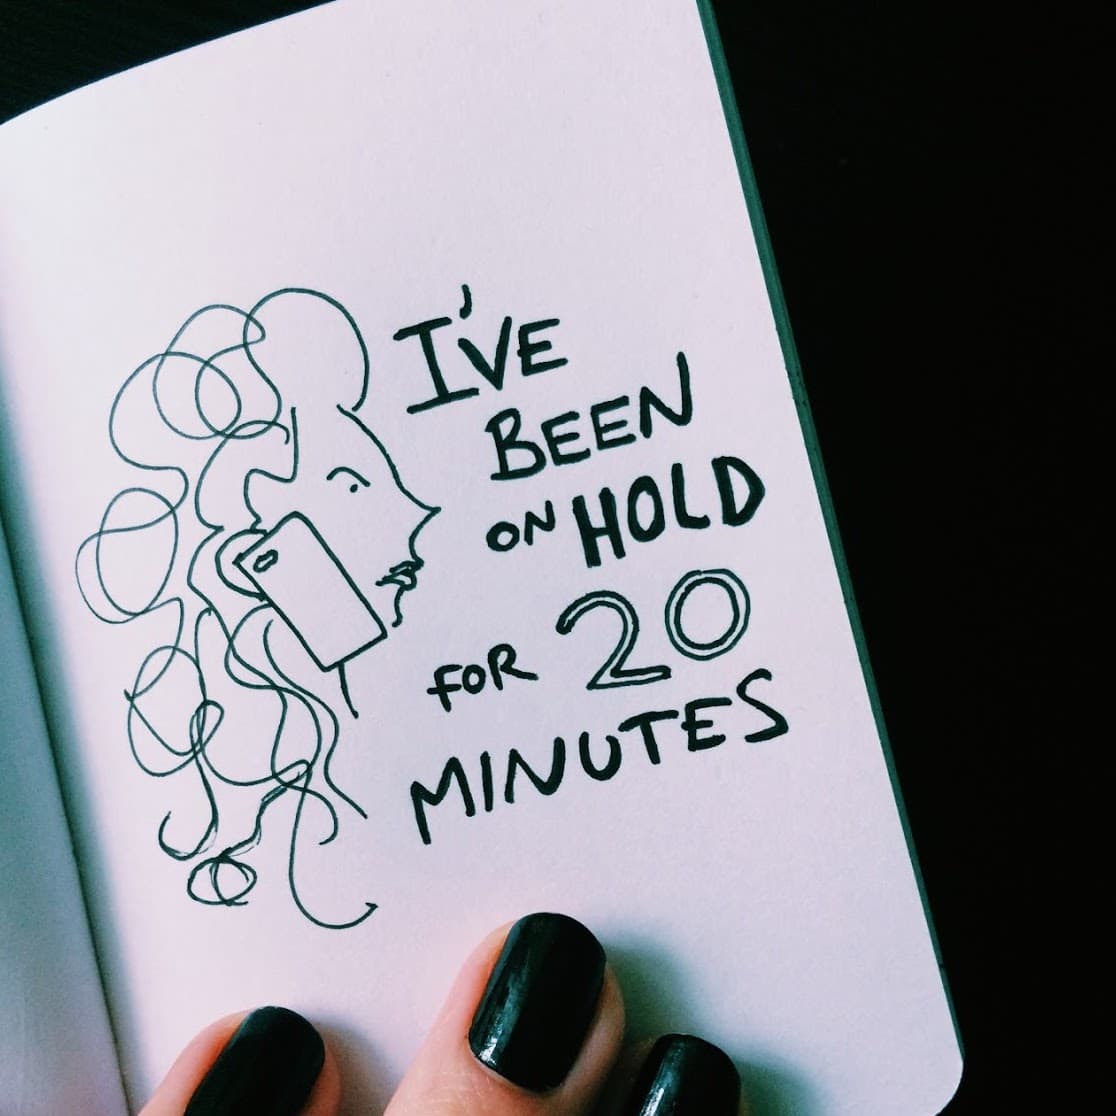 I'VE
BEEN
ON HOLD
FOR 20
MINUTES